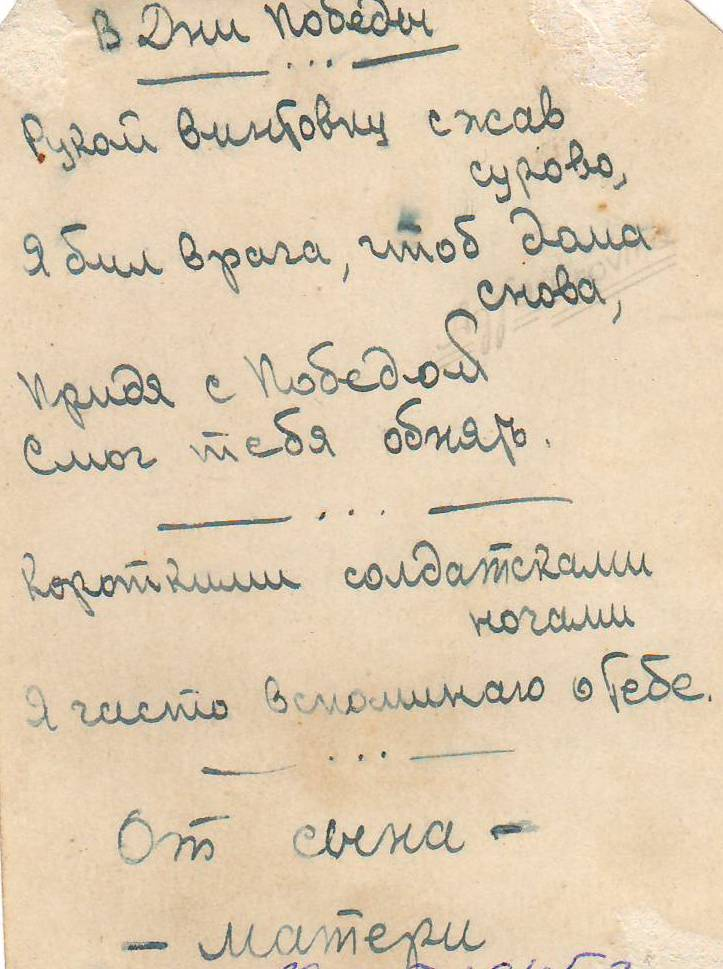 В Дни Победы
Рукой винтовку сжав
сурово,
Я бил врага, чтоб дома
снова,
Придя с Победой
Смог тебя обнять.
Короткими солдатсками
ночами
Я часто вспоминаю о тебе.
От сына -
- матери